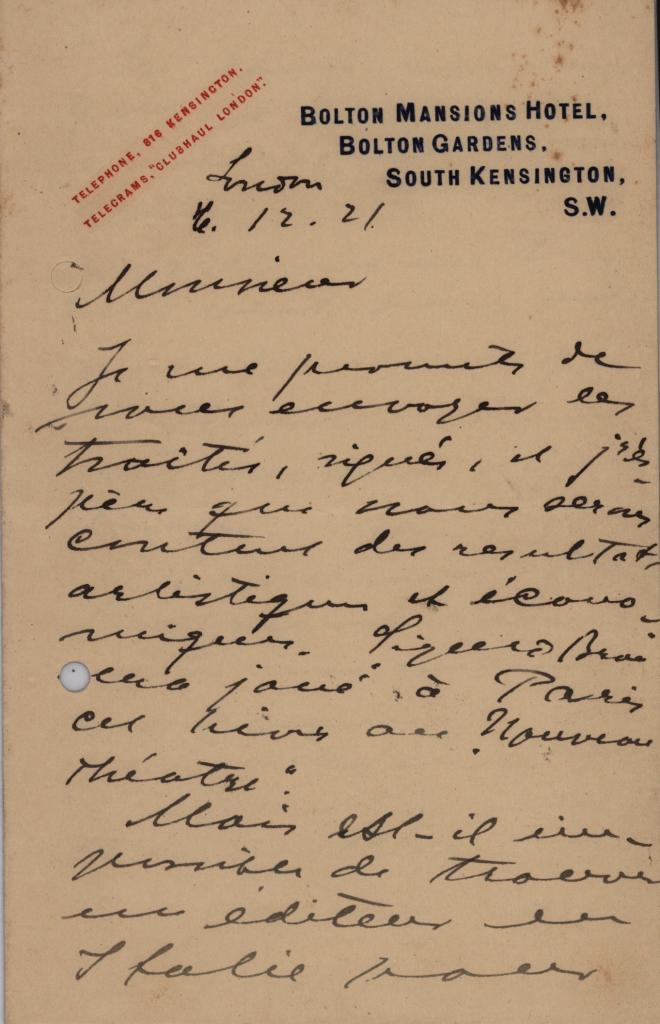 TELEPHONE, 816 KENSINGTON.
TELEGRAMS, "CLUBHAUL LONDON".
BOLTON MANSIONS HOTEL,
BOLTON GARDENS,
SOUTH KENSINGTON,
S.W.
London
12.21
Monsieur
Je me permets de
vous envoyer les
traités, signés, et j'es-
père que nous serons
content des resultats
artistiques et écono-
miques.
joué à Paris
cet hiver au "Nouveau
théatre".
Mais est-il im-
possible de trouver
un éditeur en
Italie pour